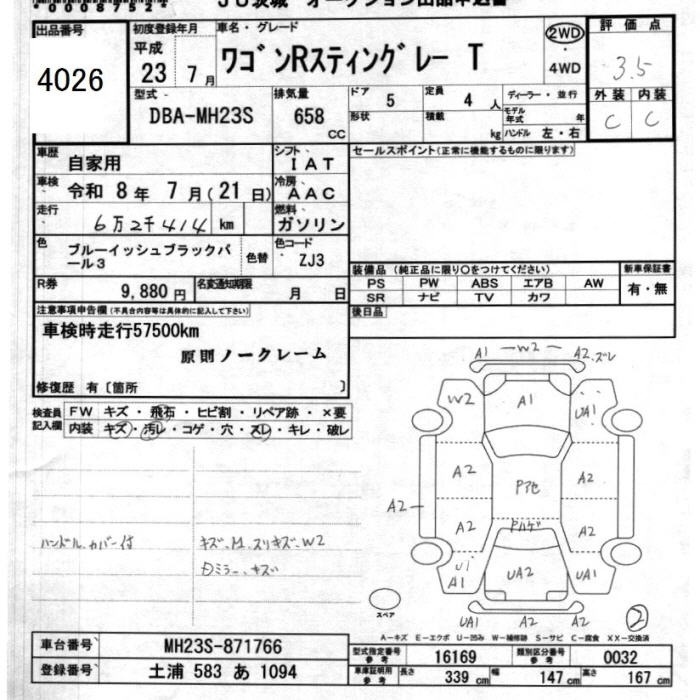 0087524 JU茨城 オークション出品申込書
出品番号 初度登録年月 車名・グレード 評価点
4026 平成 23年 7月 ワゴンRスティングレー T 2WD ・ 4WD 3.5
型式 排気量 ドア 5 定員 4人 ディーラー・並行 外装 内装
DBA-MH23S 658 CC 形状 積載 kg モデル年式 年 ハンドル 左・右 C C
車歴 自家用 シフト IAT セールスポイント(正常に機能するものに限ります)
車検 令和 8年 7月(21日) 冷房 AAC
走行 6万2千414 km 燃料 ガソリン
色 ブルーイッシュブラックパール3 色替 色コード ZJ3
装備品 (純正品に限り○をつけてください) 新車保証書
PS PW ABS エアB AW 有・無
R券 9,880円 名変通知期限 月 日 SR ナビ TV カワ
注意事項申告欄(不具合内容等は具体的に記入して下さい) 後日品
車検時走行57500km
原則ノークレーム
修復歴 有〔箇所 〕
検査員記入欄 FW キズ・飛石・ヒビ割・リペア跡・×要
内装 キズ・汚レ・コゲ・穴・スレ・キレ・破レ
A1 W2 A2.ズレ
W2 A1 UA1
A2 A2
A2 A2 A2
U1 A1 UA2 UA1
UA1 A2 A2
ハンドルカバー付 キズ、M、スリキズ、W2
Dミラー、キズ
スペア ②
A-キズ E-エクボ U-凹み W-補修跡 S-サビ C-腐食 XX-交換済
車台番号 MH23S-871766 型式指定番号 参考 16169 類別区分番号 参考 0032
登録番号 土浦 583 あ 1094 車庫証明用 参考 長さ 339cm 幅 147cm 高さ 167cm